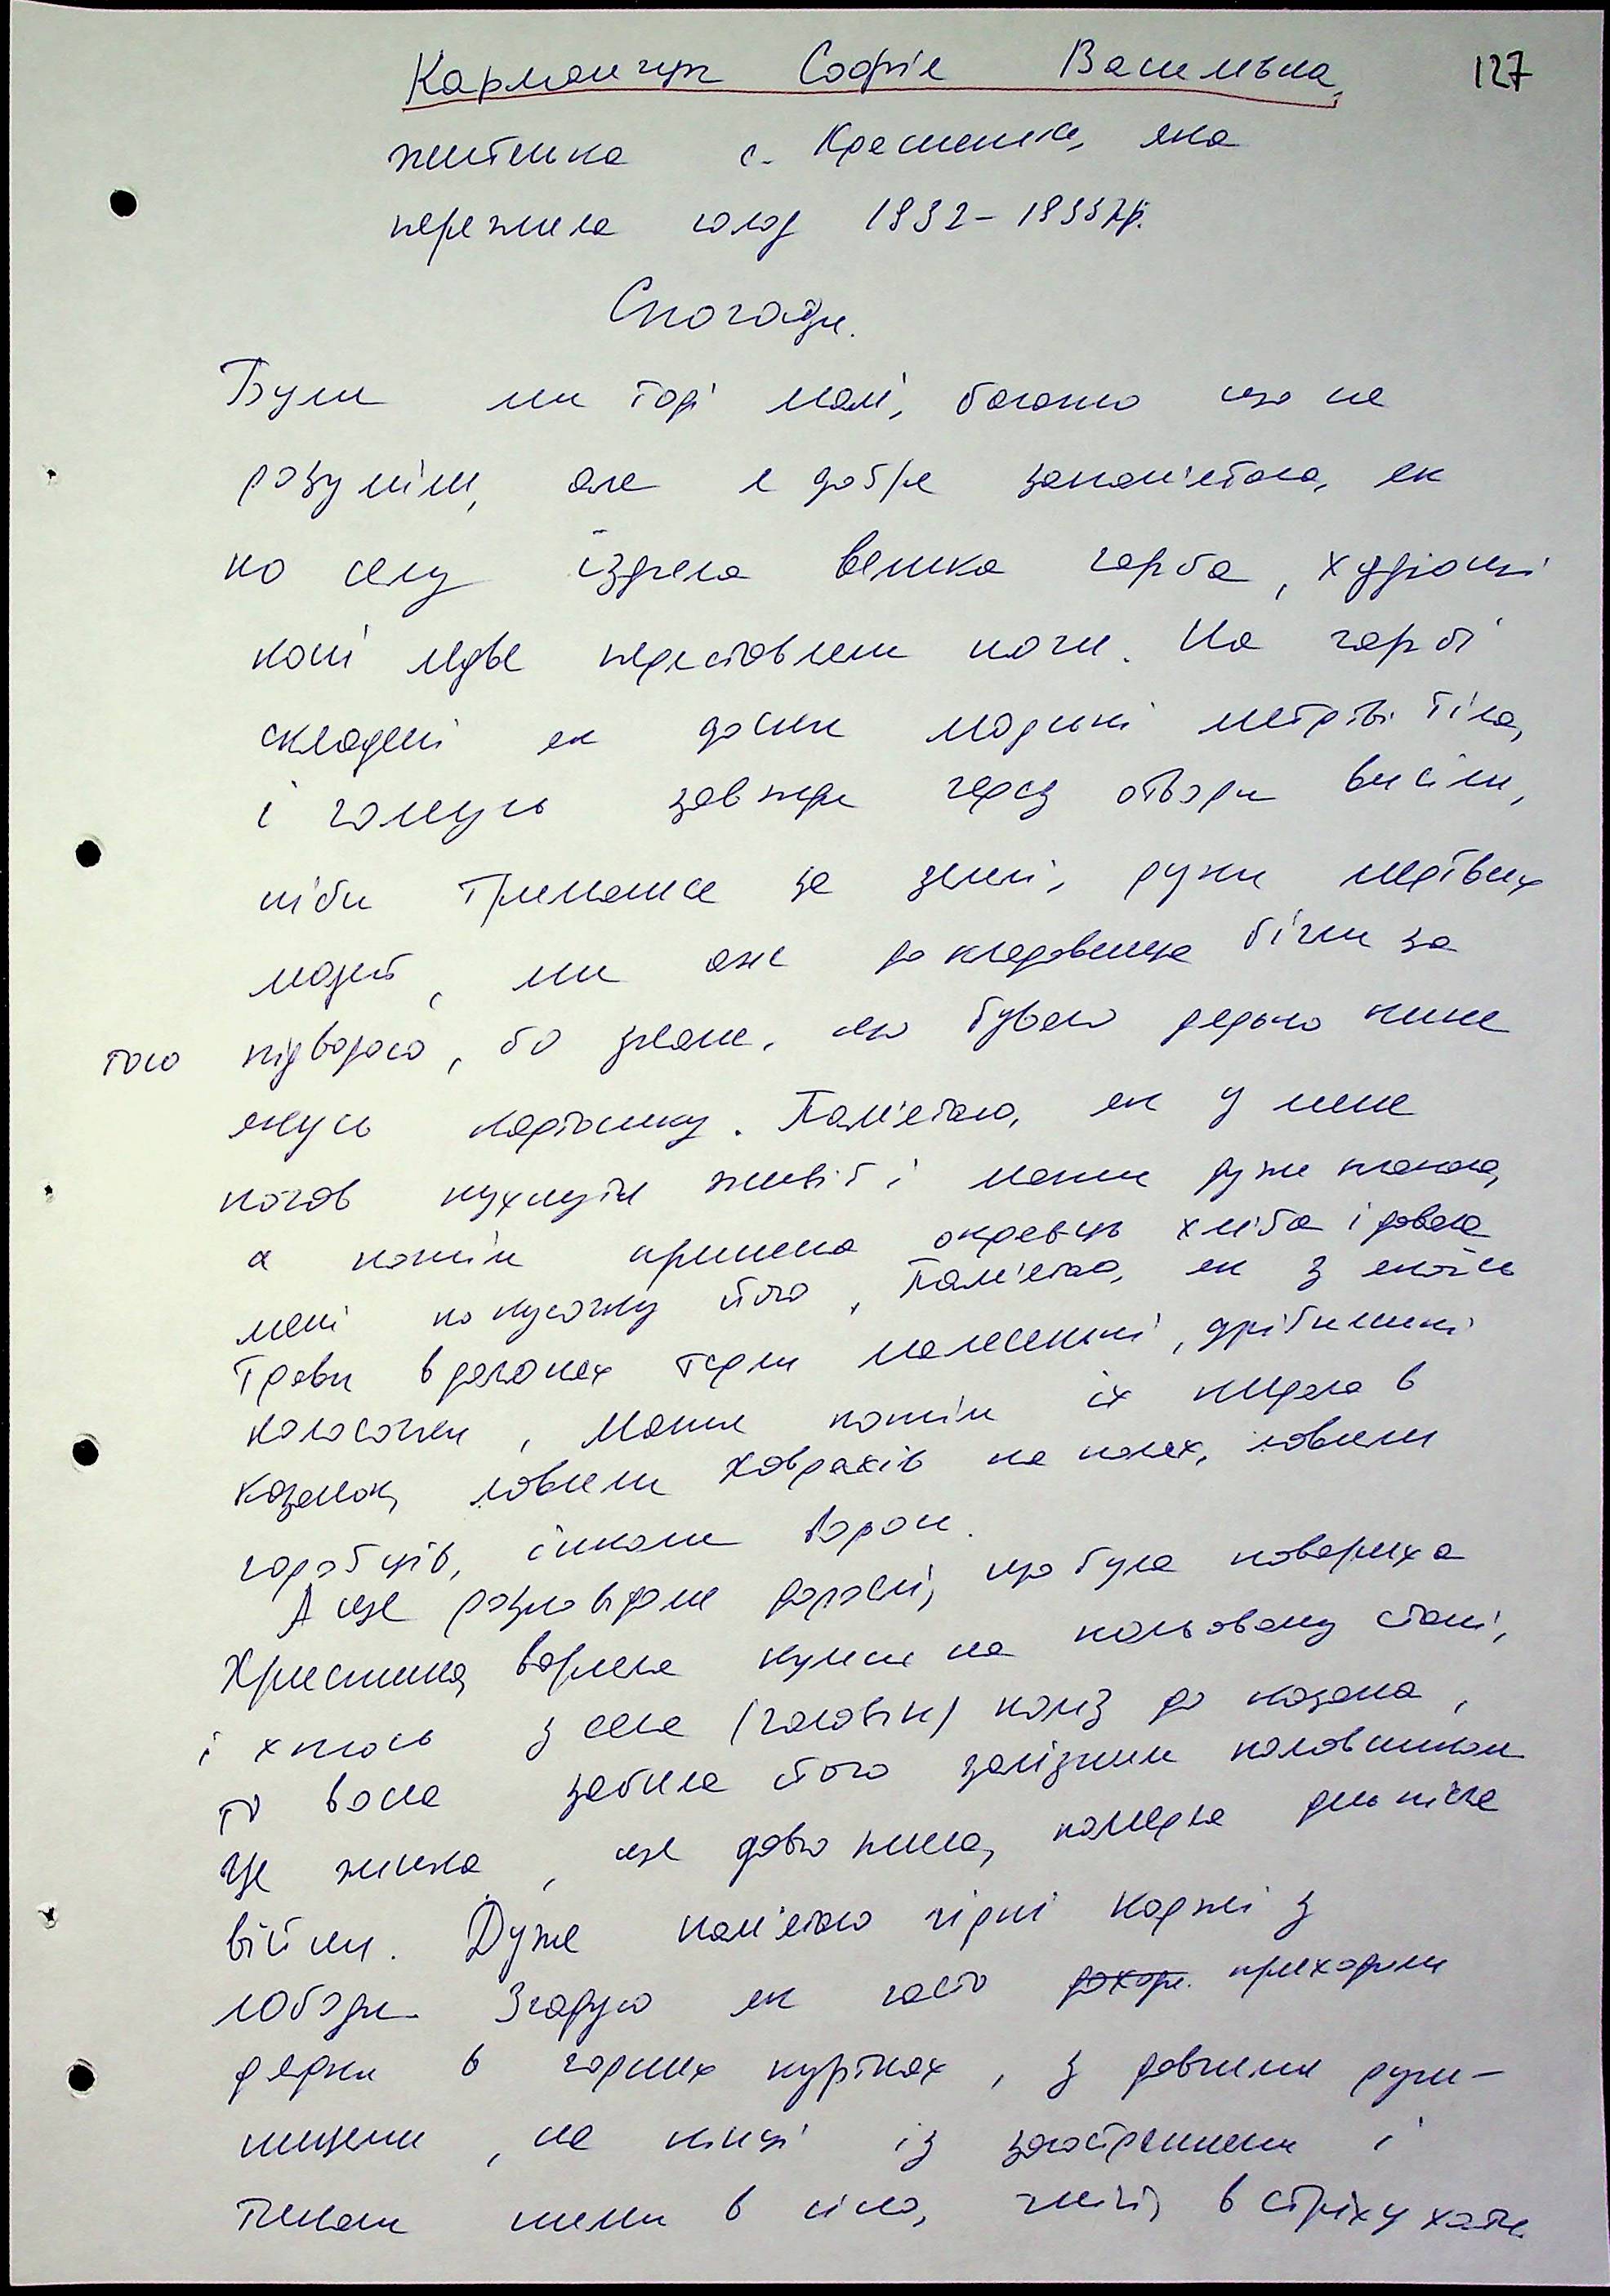 Карманчук Софія Василівна, 127
жителька с. Кремениця, яка
пережила голод 1932-1933 рр.
Спогади.
Були ми тоді малі, багато що не
розуміли, але я добре запам'ятала, як
по селу їздила велика гарба, худющі
коні ледве переставляли ноги. На гарбі
складені як доски людські мертві тіла,
і чомусь завжди через отвори висіли,
ніби трималися за землі, руки мертвих
людей, ми аж до кладовища бігли за
тою підводою, бо знали, що бувало дядько кине
якусь картоплину. Пам'ятаю, як у мене
почав пухнути живіт і мати дуже плакала,
а потім принесла окраєць хліба і давала
мені по кусочку його, пам'ятаю, як з якоїсь
трави в долонях терли малесенькі, дрібненькі
колосочки, мати потім їх кидала в
казанок, ловили ховрахів на полях, ловили
горобців, інколи ворон.
А ще розповідали дорослі, що була повариха
Христина, варила куліш на польовому стані,
і хтось з села (чоловік) поліз до казана,
то вона забила його залізним половником
Ця жінка, ще довго жила, померла уже після
війни. Дуже пам'ятаю чорні коржі з
лободи. Згадую як часто доходи. приходили
дядьки в чорних куртках, з довгими ружи-
нищами, на кінці із загостреннями і
тикали ними в сіно, гній, в стріху хати